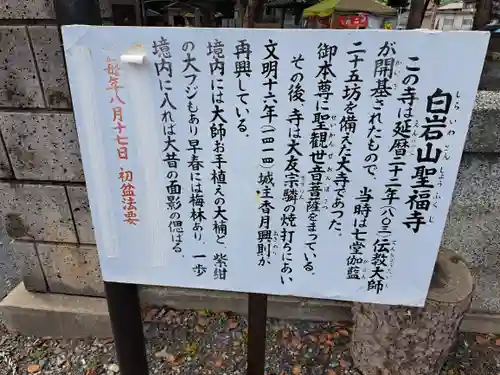 白岩山聖福寺
しらいわさんしょうふくじ
この寺は延暦二十二年(八〇三)伝教大師
が開基されたもので、当時は七堂伽藍
二十五坊を備えた大寺であった。
御本尊に聖観世音菩薩をまつっている。
その後、寺は大友宗麟の焼打ちにあい
文明十六年(一四一四)城主香月興則が
再興している。
境内には大師お手植えの大楠と紫紺
の大フジもあり早春には梅林あり、一歩
境内に入れば大昔の面影の偲ばる。
毎年八月十七日 初盆法要